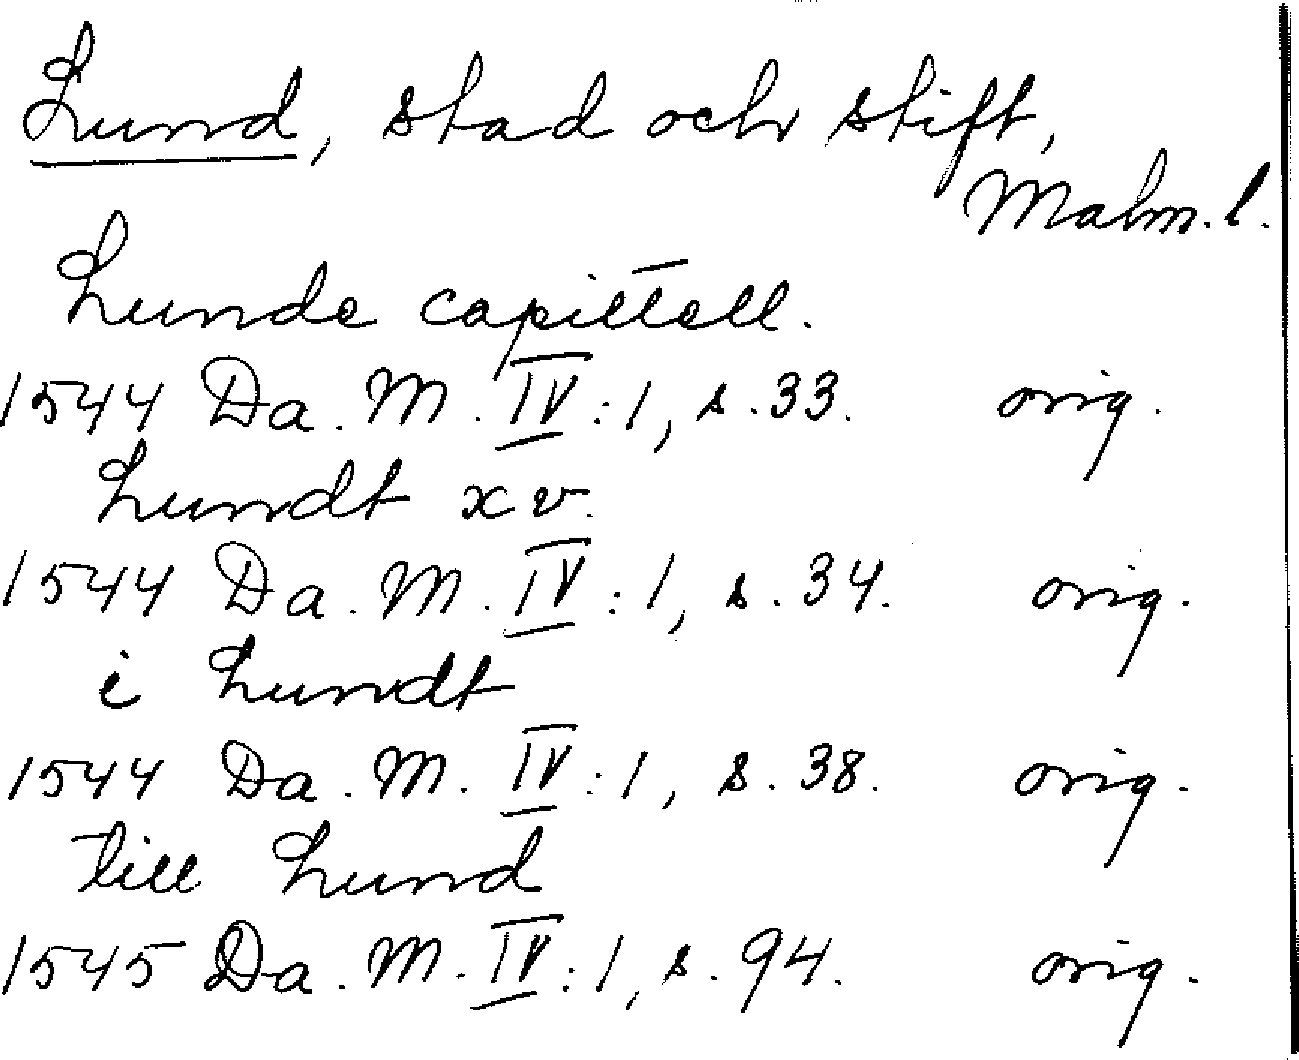 Lund, stad och stift,
Malm. l.
Lunde capittell.
1544 Da. M. IV:1, s. 33. orig.
Lundt xv.
1544 Da. M. IV:1, s. 34. orig.
i Lundt
1544 Da. M. IV:1, s. 38. orig.
till Lund
1545 Da. M. IV:1, s. 94. orig.